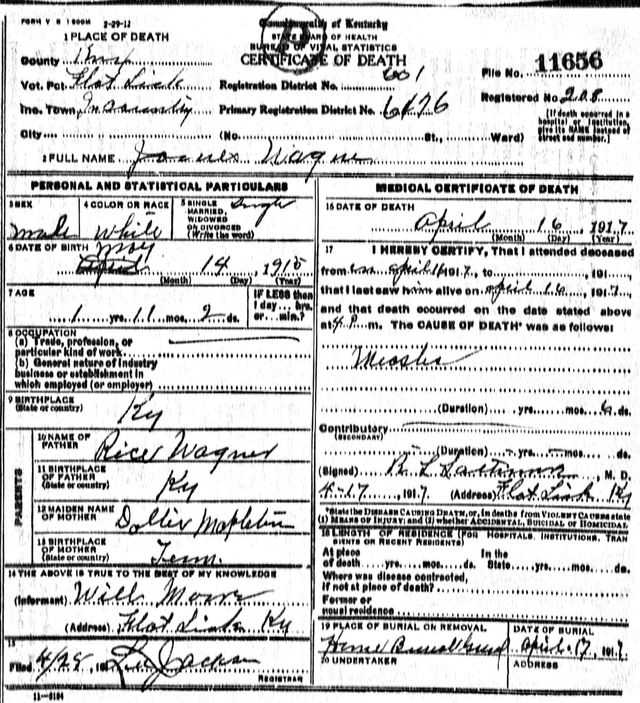 FORM V S 1 500M 2-29-12
Commonwealth of Kentucky
STATE BOARD OF HEALTH
BUREAU OF VITAL STATISTICS
CERTIFICATE OF DEATH
1 PLACE OF DEATH
County Knox
Vot. Pct. Flat Lick
Inc. Town, In country
City
Registration District No. 601
Primary Registration District No. 6426
(No. St., Ward)
File No. 11656
Registered No. 208
[If death occurred in a
hospital or institution,
give its NAME instead of
street and number.]
2 FULL NAME James Wagner
PERSONAL AND STATISTICAL PARTICULARS
3 SEX male
4 COLOR OR RACE white
5 SINGLE, MARRIED, WIDOWED OR DIVORCED (Write the word) Single
6 DATE OF BIRTH May
April 14, 1915
(Month) (Day) (Year)
7 AGE
1 yrs. 11 mos. 2 ds.
IF LESS than
1 day.... hrs.
or.... min.?
8 OCCUPATION
(a) Trade, profession, or
particular kind of work
(b) General nature of industry
business or establishment in
which employed (or employer)
9 BIRTHPLACE
(State or country) Ky
PARENTS
10 NAME OF
FATHER Rice Wagner
11 BIRTHPLACE
OF FATHER
(State or country) Ky
12 MAIDEN NAME
OF MOTHER Dollie
13 BIRTHPLACE
OF MOTHER
(State or country) Tenn.
14 THE ABOVE IS TRUE TO THE BEST OF MY KNOWLEDGE
(Informant) Will Moore
(Address) Flat Lick Ky
15
Filed 4/28, 191 Jackson
REGISTRAR
11-3184
MEDICAL CERTIFICATE OF DEATH
16 DATE OF DEATH
April 16, 1917
(Month) (Day) (Year)
17 I HEREBY CERTIFY, That I attended deceased
from on April 16 1917, to , 191
that I last saw him alive on April 16, 1917,
and that death occurred on the date stated above
at 4 P. m. The CAUSE OF DEATH* was as follows:
Measles
(Duration) yrs. mos. 6 ds.
Contributory
(SECONDARY)
(Duration) yrs. mos. ds.
(Signed) R. L. , M. D.
4-17, 1917 (Address) Flat Lick Ky
*State the DISEASE CAUSING DEATH, or, in deaths from VIOLENT CAUSES state
(1) MEANS OF INJURY; and (2) whether ACCIDENTAL, SUICIDAL or HOMICIDAL
18 LENGTH OF RESIDENCE (FOR HOSPITALS, INSTITUTIONS, TRAN
SIENTS OR RECENT RESIDENTS)
At place In the
of death yrs. mos. ds. State yrs. mos. ds.
Where was disease contracted,
if not at place of death?
Former or
usual residence
19 PLACE OF BURIAL OR REMOVAL
Home Burial Ground
DATE OF BURIAL
April 17, 1917
20 UNDERTAKER
ADDRESS